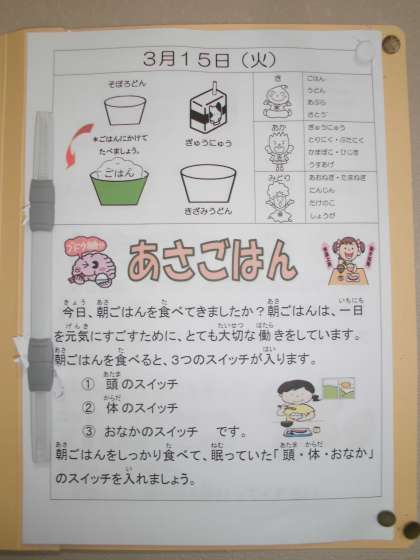 3月15日（火）
そぼろどん
ぎゅうにゅう
＊ごはんにかけて
たべましょう。
ごはん
きざみうどん
き
ごはん
うどん
あぶら
さとう
あか
ぎゅうにゅう
とりにく・ぶたにく
かまぼこ・ひじき
うすあげ
みどり
あおねぎ・たまねぎ
にんじん
たけのこ
しょうが
あさごはん
今日、朝ごはんを食べてきましたか？朝ごはんは、一日
を元気にすごすために、とても大切な働きをしています。
朝ごはんを食べると、3つのスイッチが入ります。
① 頭のスイッチ
② 体のスイッチ
③ おなかのスイッチ です。
朝ごはんをしっかり食べて、眠っていた「頭・体・おなか」
のスイッチを入れましょう。